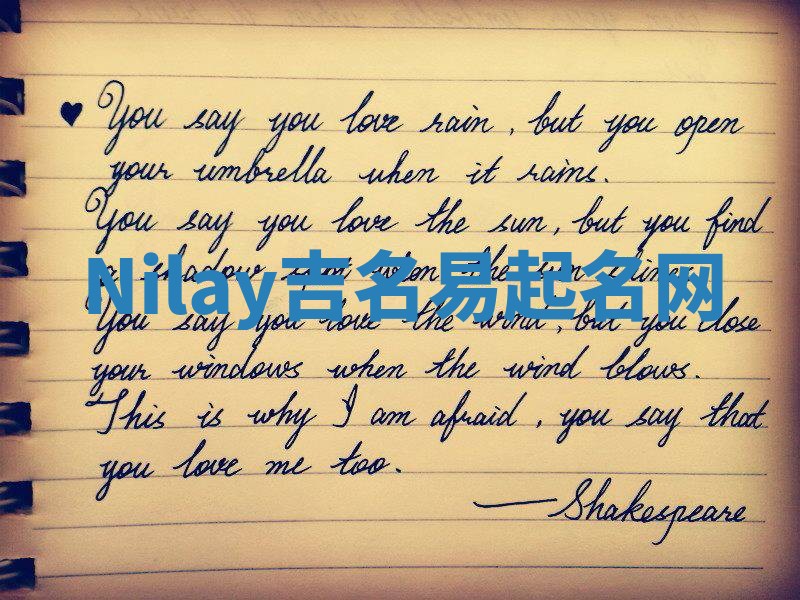 You say you love rain, but you open
your umbrella when it rains.
You say you love the sun, but you find
a shadow spot when the sun shines.
Nilay吉名易起名网
You say you love the wind, but you close
your windows when the wind blows.
This is why I am afraid, you say that
you love me too.
—Shakespeare